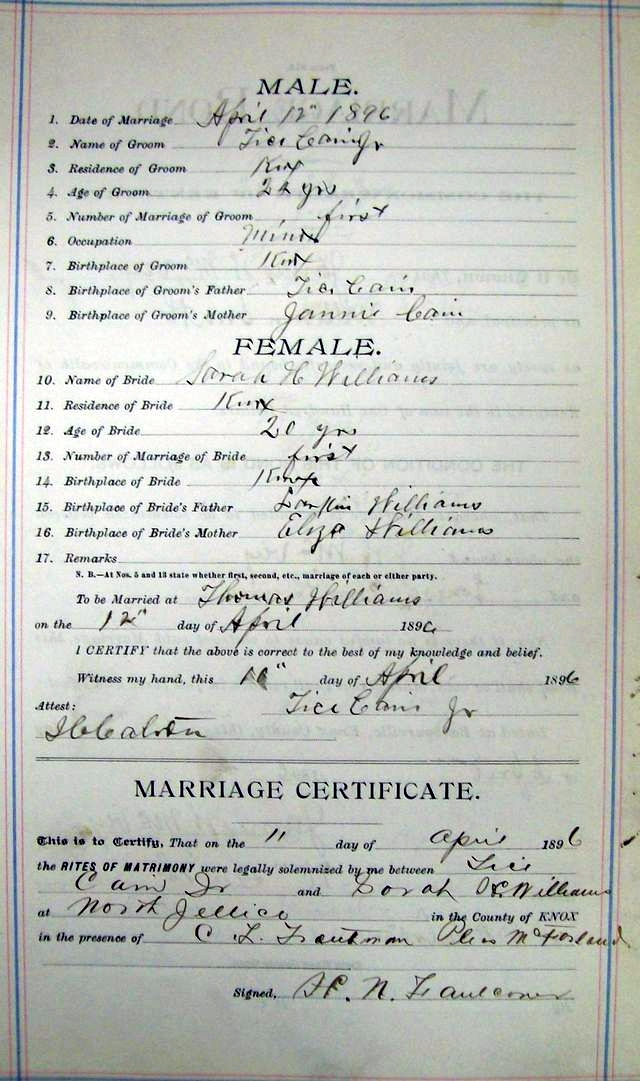 MALE.
1. Date of Marriage April 12" 1896
2. Name of Groom Tice Cain Jr
3. Residence of Groom Knox
4. Age of Groom 22 yrs
5. Number of Marriage of Groom first
6. Occupation Miner
7. Birthplace of Groom Knox
8. Birthplace of Groom's Father Tice Cain
9. Birthplace of Groom's Mother Jannie Cain
FEMALE.
10. Name of Bride Sarah H Williams
11. Residence of Bride Knox
12. Age of Bride 20 yrs
13. Number of Marriage of Bride first
14. Birthplace of Bride Knox
15. Birthplace of Bride's Father Larkin Williams
16. Birthplace of Bride's Mother Eliza Williams
17. Remarks
N. B.—At Nos. 5 and 13 state whether first, second, etc., marriage of each or either party.
To be Married at Thomas Williams
on the 12" day of April 1896
I CERTIFY that the above is correct to the best of my knowledge and belief.
Witness my hand, this 10" day of April 1896
Attest: Tice Cain Jr
MARRIAGE CERTIFICATE.
This is to Certify, That on the 11 day of April 1896
the RITES OF MATRIMONY were legally solemnized by me between Tice
Cain Jr and Sarah Williams
at North Jellico in the County of KNOX
in the presence of C L Trautman Pleas McFarland
Signed, N. Faulconer